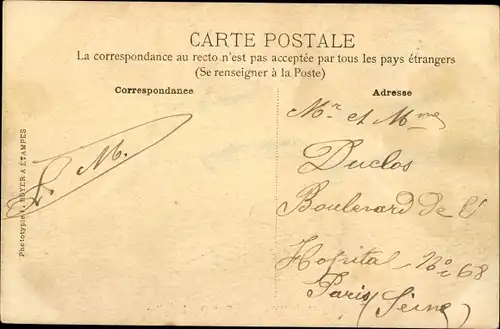 CARTE POSTALE
La correspondance au recto n'est pas acceptée par tous les pays étrangers
(Se renseigner à la Poste)
Correspondance
Adresse
Mr et Mme
Duclos
Boulevard de l'
Hopital No 68
Paris (Seine)
M.
Phototypie L. ROYER A ÉTAMPES